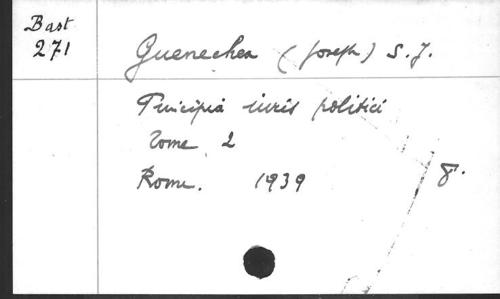 Bast
271
Guenechea (Joseph) S.J.
Principia iuris politici
Tome 2
Rome. 1939 8.